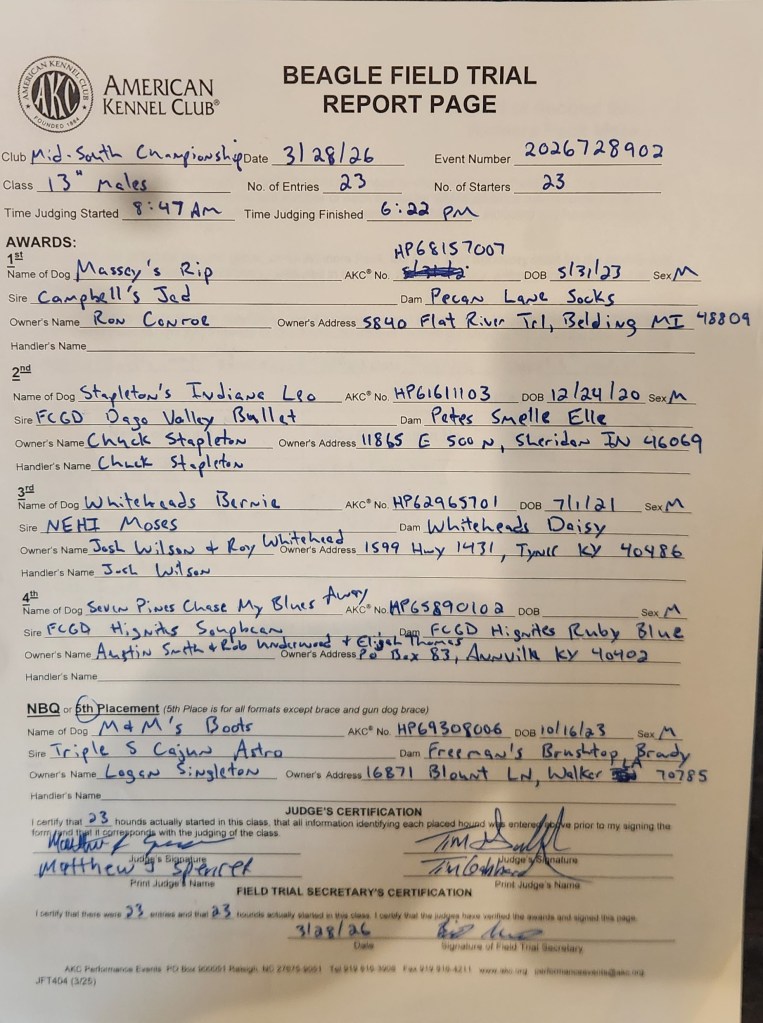 AMERICAN KENNEL CLUB
AKC
FOUNDED 1884
AMERICAN
KENNEL CLUB®
BEAGLE FIELD TRIAL
REPORT PAGE
Club Mid-South Championship Date 3/28/26 Event Number 2026728902
Class 13" Males No. of Entries 23 No. of Starters 23
Time Judging Started 8:47 AM Time Judging Finished 6:22 PM
AWARDS:
1st
Name of Dog Massey's Rip AKC® No. HP68157007 DOB 5/31/23 Sex M
Sire Campbell's Jed Dam Pecan Lane Socks
Owner's Name Ron Conroe Owner's Address 5840 Flat River Trl, Belding MI 48809
Handler's Name
2nd
Name of Dog Stapleton's Indiana Leo AKC® No. HP61611103 DOB 12/24/20 Sex M
Sire FCGD Dago Valley Bullet Dam Petes Smelle Elle
Owner's Name Chuck Stapleton Owner's Address 11865 E 500 N, Sheridan IN 46069
Handler's Name Chuck Stapleton
3rd
Name of Dog Whiteheads Bernie AKC® No. HP62965701 DOB 7/1/21 Sex M
Sire NEHI Moses Dam Whiteheads Daisy
Owner's Name Josh Wilson & Roy Whitehead Owner's Address 1599 Hwy 1431, Tyner KY 40486
Handler's Name Josh Wilson
4th
Name of Dog Seven Pines Chase My Blues Away AKC® No. HP65890102 DOB Sex M
Sire FCGD Hignits Soupbean Dam FCGD Hignites Ruby Blue
Owner's Name Austin Smith & Rob Underwood & Elijah Thomas Owner's Address PO Box 83, Annville KY 40402
Handler's Name
NBQ or 5th Placement (5th Place is for all formats except brace and gun dog brace)
Name of Dog M&M's Boots AKC® No. HP69308006 DOB 10/16/23 Sex M
Sire Triple S Cajun Astro Dam Freeman's Brushtop Brady
Owner's Name Logan Singleton Owner's Address 16871 Blount LN, Walker LA 70785
Handler's Name
JUDGE'S CERTIFICATION
I certify that 23 hounds actually started in this class, that all information identifying each placed hound was entered above prior to my signing the
form and that it corresponds with the judging of the class.
Judge's Signature Judge's Signature
Matthew J Spencer Tim Gabbard
Print Judge's Name Print Judge's Name
FIELD TRIAL SECRETARY'S CERTIFICATION
I certify that there were 23 entries and that 23 hounds actually started in this class. I certify that the judges have verified the awards and signed this page.
3/28/26
Date Signature of Field Trial Secretary
AKC Performance Events PO Box 900051 Raleigh, NC 27675-9051 Tel 919 816-3908 Fax 919 816-4211 www.akc.org performanceevents@akc.org
JFT404 (3/25)